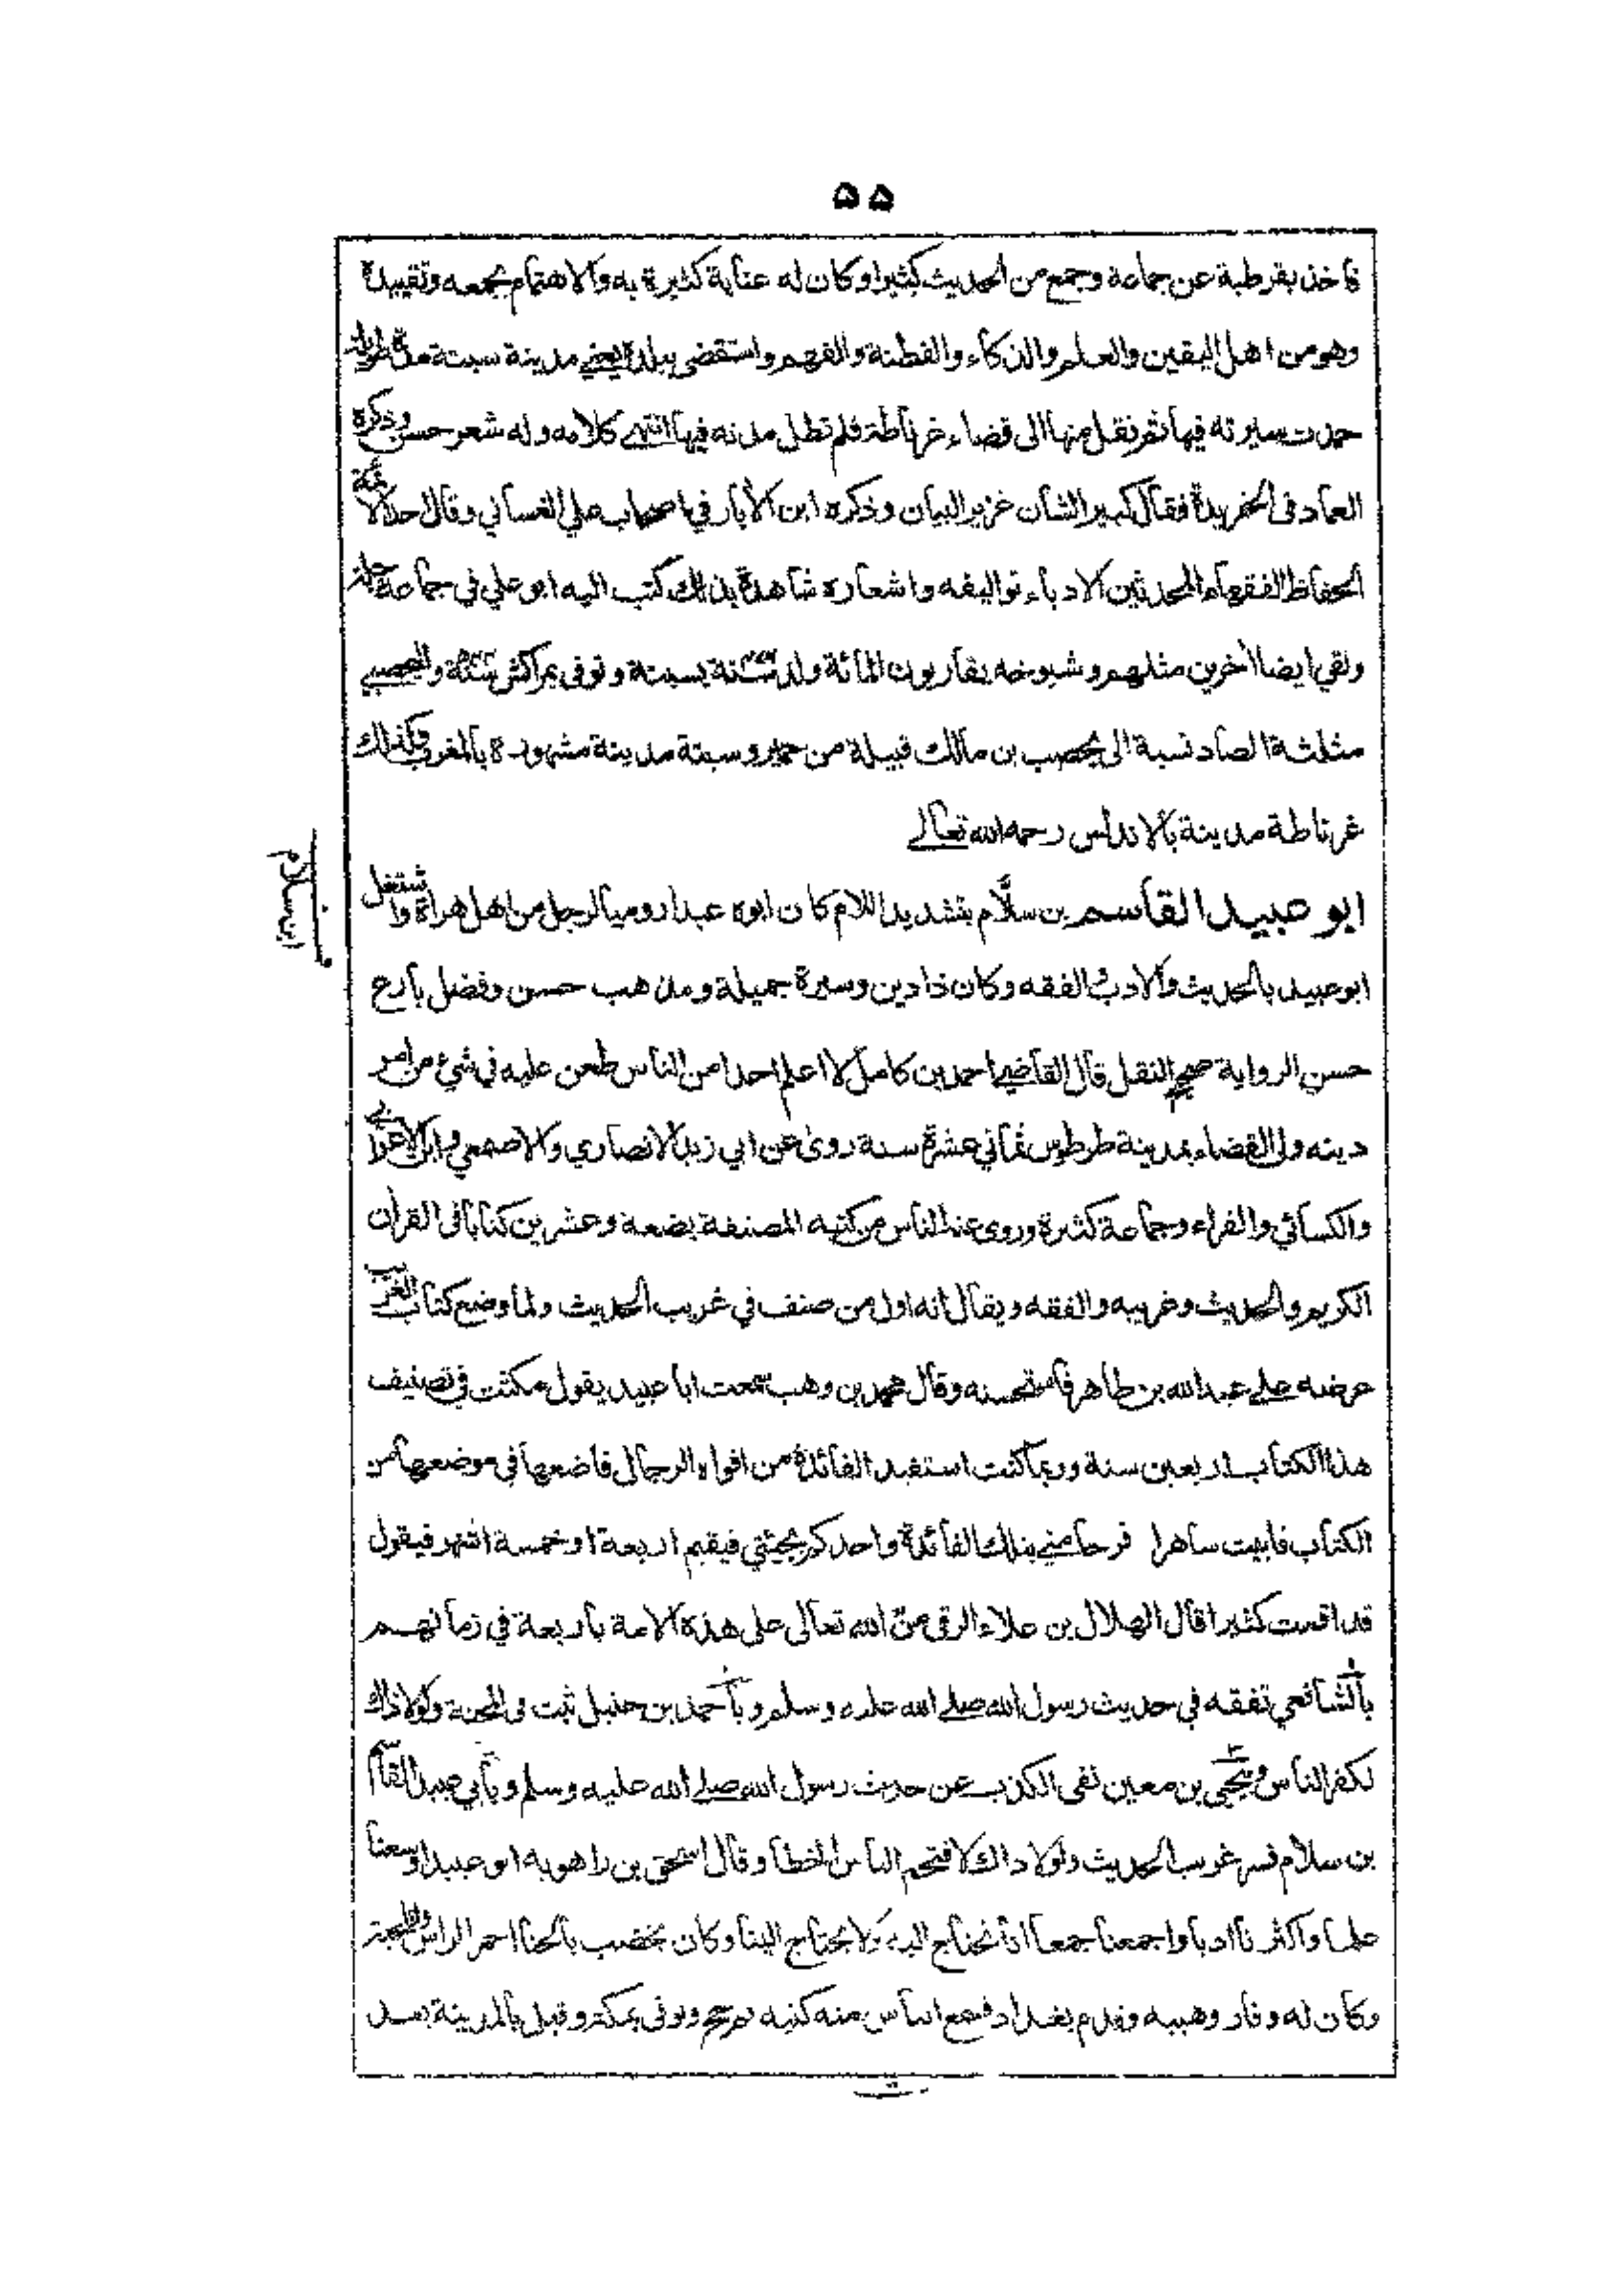 ۵۵
فاخذ بقرطبة عن جماعة وجمع من الحديث كثيرا وكان له عناية كثيرة به والاهتمام بجمعه وتقييده
وهو من اهل اليقين والعلم والذكاء والفطنة والفهم واستقضى ببلده يعني مدينة سبتة مدة طويلة
حمدت سيرته فيها ثم نقل منها الى قضاء غرناطة فلم تطل مدته فيها انتهى كلامه وله شعر حسن وذكره
العماد فى الخريدة فقال كبير الشان غزير البيان وذكره ابن الأبار في اصحاب علي الغساني وقال احد الائمة
الحفاظ الفقهاء المحدثين الادباء تواليفه واشعاره شاهدة بذلك كتب اليه ابو علي في جماعة جلة
ولقي ايضا اخرين مثلهم وشيوخه يقاربون المائة ولد سنة بسبتة وتوفى بمراكش سنة واليحصبي
مثلثة الصاد نسبة الى يحصب بن مالك قبيلة من حمير وسبتة مدينة مشهورة بالمغرب وكذلك
غرناطة مدينة بالاندلس رحمه الله تعالى
ابن سلام
ابو عبيد القاسم بن سلّام بتشديد اللام كان ابوه عبدا روميا لرجل من اهل هراة واشتغل
ابو عبيد بالحديث والادب والفقه وكان ذا دين وسيرة جميلة ومذهب حسن وفضل بارع
حسن الرواية صحيح النقل قال القاضي احمد بن كامل لا اعلم احدا من الناس طعن عليه في شيء من امر
دينه ولي القضاء بمدينة طرطوس ثماني عشرة سنة روى عن ابي زيد الانصاري والاصمعي وابن الاعرابي
والكسائي والفراء وجماعة كثيرة وروى عنه الناس من كتبه المصنفة بضعة وعشرين كتابا فى القران
الكريم والحديث وغريبه والفقه ويقال انه اول من صنف في غريب الحديث ولما وضع كتاب الغريب
عرضه على عبدالله بن طاهر فاستحسنه وقال محمد بن وهب سمعت ابا عبيد يقول مكثت فى تصنيف
هذا الكتاب اربعين سنة وربما كنت استفيد الفائدة من افواه الرجال فاضعها في موضعها من
الكتاب فابيت ساهرا فرحا مني بتلك الفائدة واحدكم يجيئني فيقيم اربعة او خمسة اشهر فيقول
قد اقمت كثيرا قال الهلال بن علاء الرقي منّ الله تعالى على هذه الامة باربعة في زمانهم
بالشافعي تفقه في حديث رسول الله صلى الله عليه وسلم وباحمد بن حنبل ثبت فى المحنة ولولا ذاك
لكفر الناس وبيحيى بن معين نفى الكذب عن حديث رسول الله صلى الله عليه وسلم وبابي عبيد القاسم
بن سلام فسر غريب الحديث ولولا ذاك لاقتحم الناس الخطأ وقال اسحق بن راهويه ابو عبيد اوسعنا
علما واكثرنا ادبا واجمعنا جمعا انا نحتاج اليه ولا يحتاج الينا وكان يخضب بالحنا احمر الراس واللحية
وكان له وقار وهيبه وقدم بغداد فسمع الناس منه كتبه ثم حج وتوفى بمكة وقيل بالمدينة بعد